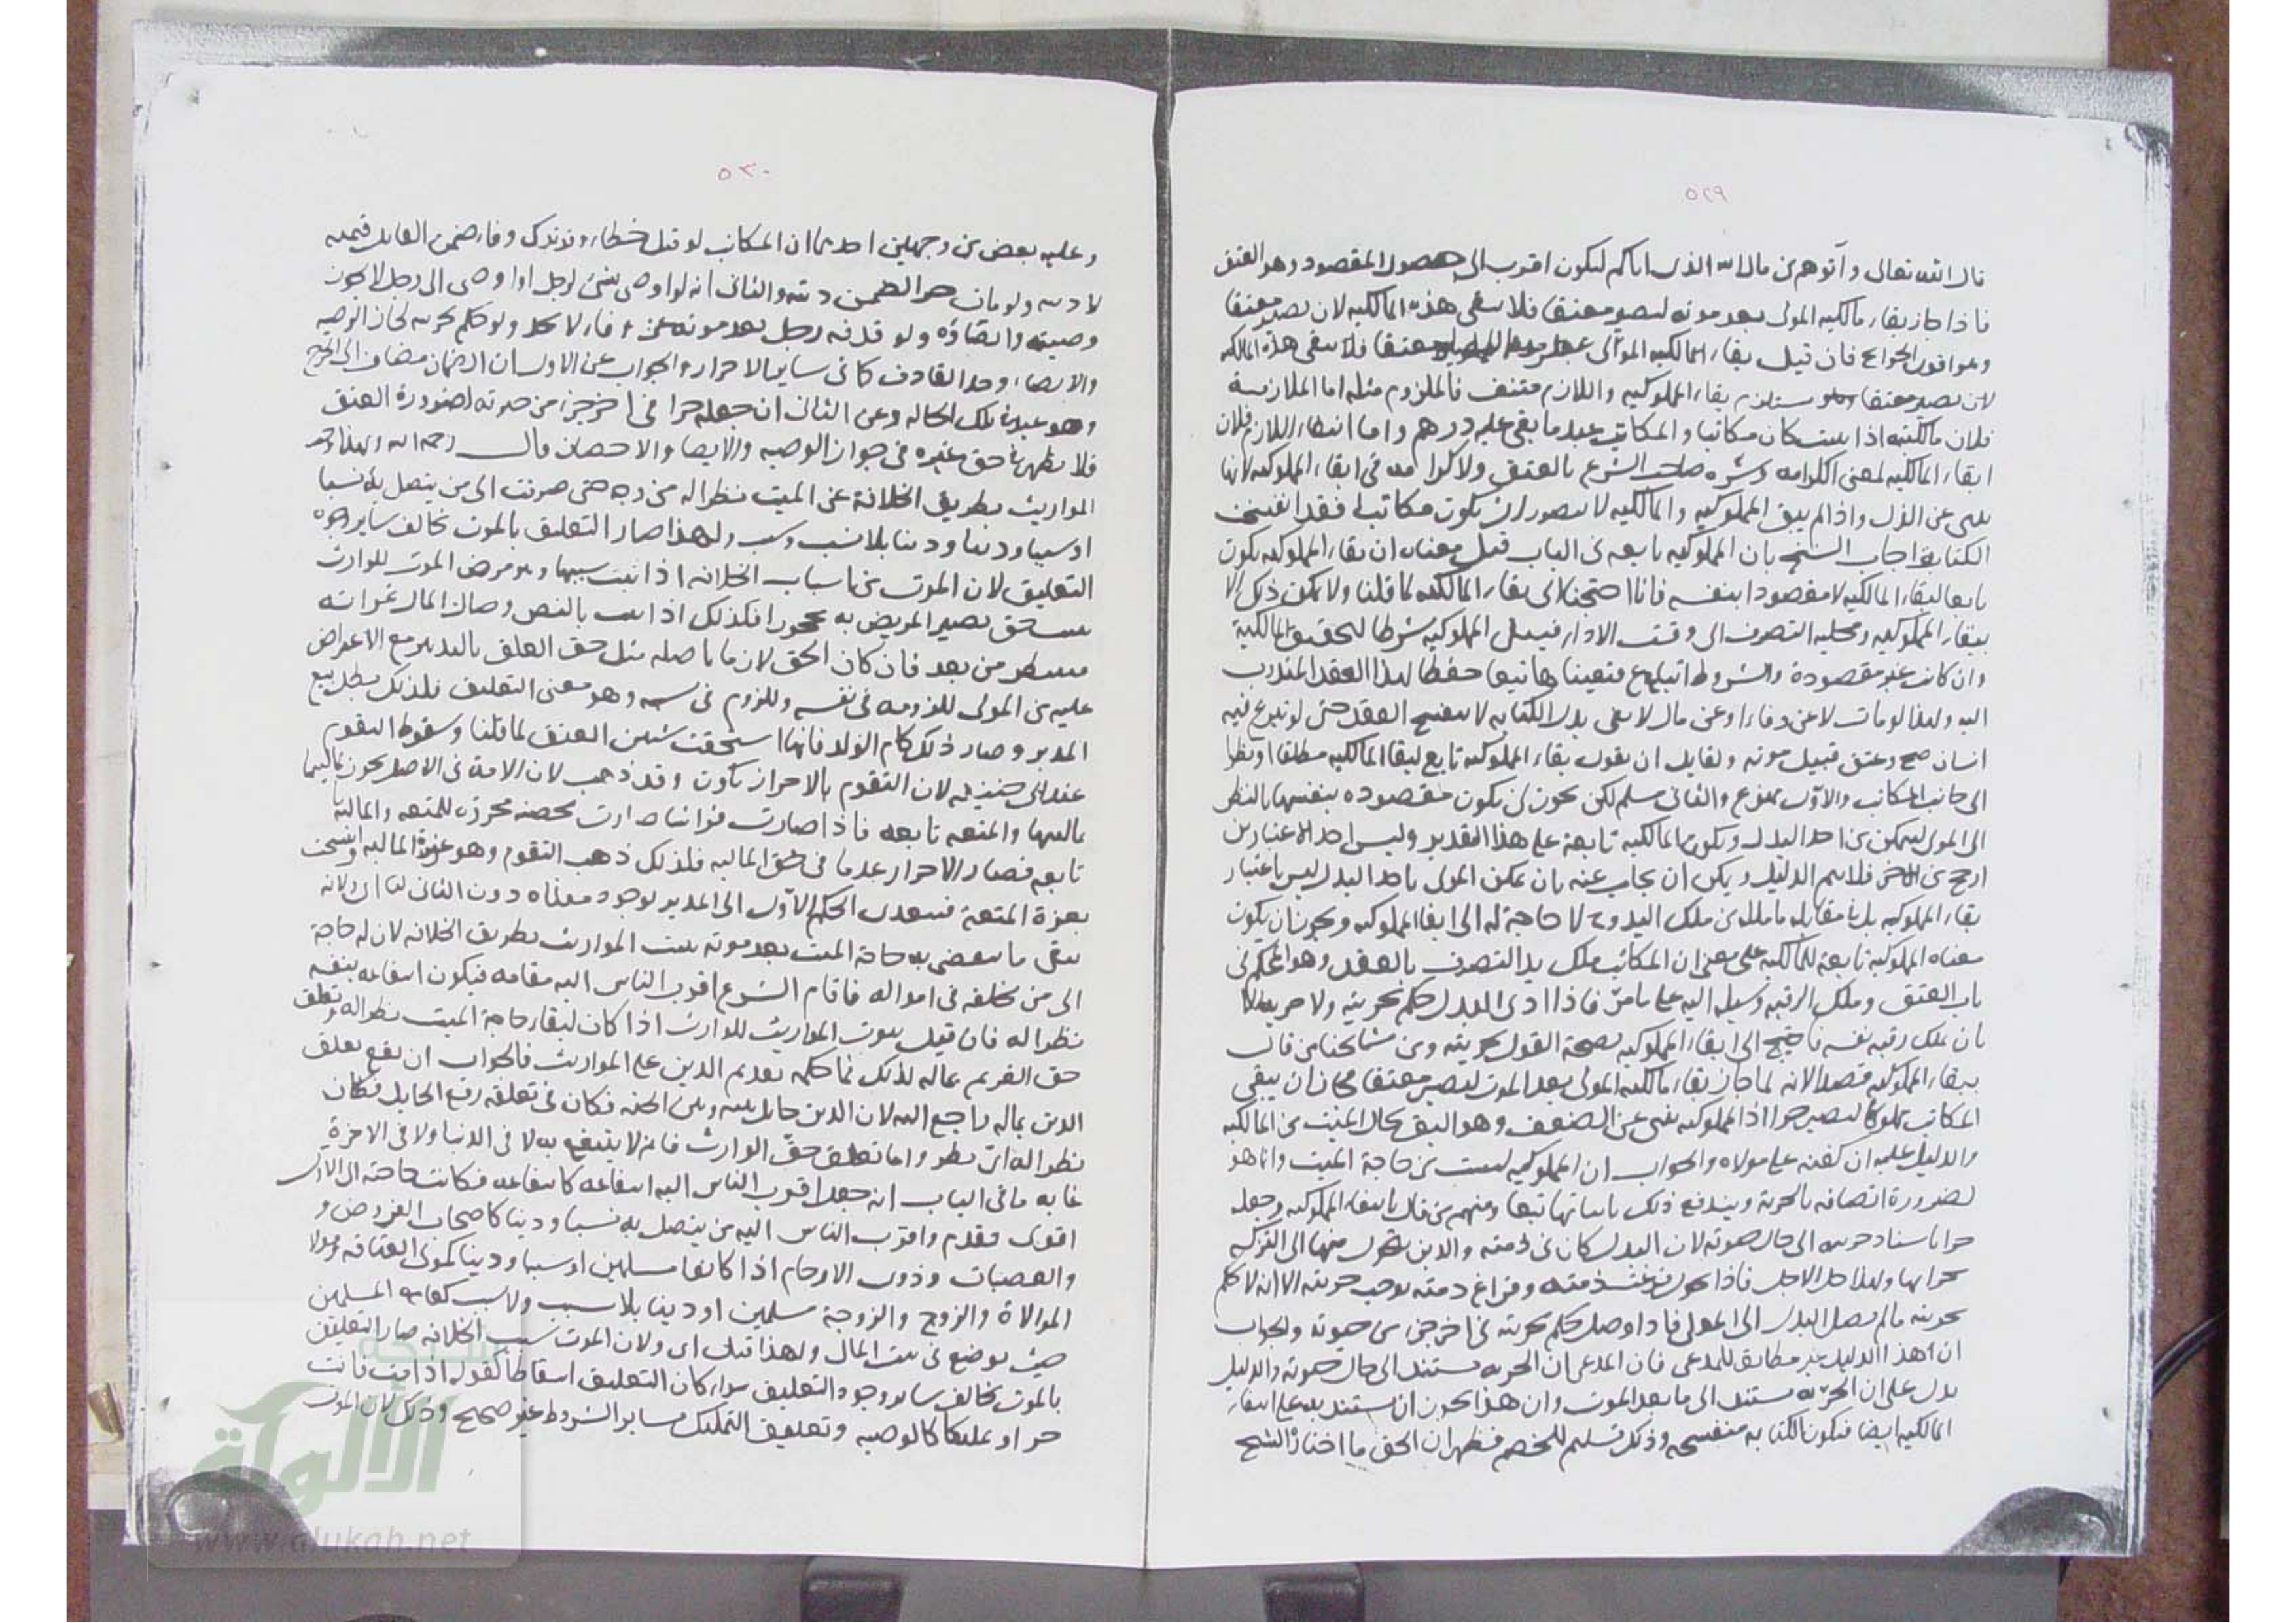 ٥٢٩
قال الله تعالى وآتوهم من مال الله الذي اتاكم ليكون اقرب الى حصول المقصود وهو العتق
فاذا جاز بقاء مالكيه المولى بعد موته ليصير معتقا فلا يبقى هذه المالكيه لان يصير معتقا
فان قيل بقاء المالكيه المولى معتقا فلا يبقى هذه المالكيه
لان يصير معتقا يستلزم بقاء المملوكيه واللازم منتف فالملزوم مثله اما الملازمة
فلان مالكيته اذا بقيت كان مكاتبا والمكاتب عبد ما بقي عليه درهم واما انتفاء اللازم فلان
ابقاء المالكيه لمعنى الكرامه صاحب الشرع بالعتق ولا كرامه في ابقاء المملوكيه لانها
عن الذل واذا لم يبق المملوكيه والمالكيه لا يتصور ان يكون مكاتبا فقد انفسخت
الكتابة اجاب الشيخ بان المملوكيه تابعه في الباب قيل معناه ان بقاء المملوكيه يكون
تابعا لبقاء المالكيه لا مقصودا بنفسه فانا احتجنا الى بقاء المالكيه لما قلنا ولا يمكن ذلك الا
ببقاء المملوكيه ومحليه التصرف الى وقت الاداء فبقى المملوكيه شرطا لتحقيق المالكية
وان كانت غير مقصودة والشروط اتباع فبقيناها تبعا حفظا لهذا العقد المندوب
اليه ولهذا لو مات لا عن وفاء او عن مال لا يفي ببدل الكتابه لا ينفسخ العقد حتى لو تبرع فيه
انسان صح وعتق قبيل موته ولقايل ان يقول بقاء المملوكيه تابع لبقا المالكيه مطلقا او نظرا
الى جانب المكاتب والاول ممنوع والثاني مسلم لكن يجوز ان يكون مقصوده بنفسها بالنظر
الى المولى ليتمكن من اخذ البدل ويكون المالكيه تابعة على هذا التقدير وليس احد الاعتبارين
ارجح من الاخر فلا يتم الدليل ويمكن ان يجاب عنه بان تمكن المولى باخذ البدل ليس باعتبار
بقاء المملوكيه بل بمقابله ما ملك من ملك اليد وح لا حاجة له الى ابقا المملوكيه ويجوز ان يكون
معناه المملوكيه تابعة للمالكيه على معنى ان المكاتب ملك يد التصرف بالعقد وهو المحكم في
باب العتق وملك الرقبه وسيله اليه على ما مر فاذا ادى البدل حكم بحريته ولا
بان ملك رقبه نفسه فاحتيج الى ابقاء المملوكيه لصحة القول بحريته ومن مشايخنا من قال
ببقاء المملوكيه قصدا لانه لما جاز بقاء مالكيه المولى بعد الموت ليصير معتقا فجاز ان يبقى
المكاتب مملوكا ليصير حرا اذ المملوكيه تنبي عن الضعف وهو اليق بحال الميت من المالكيه
والدليل عليه ان كفنه على مولاه والجواب ان المملوكيه ليست من حاجة الميت وانما هو
لضرورة اتصافه بالحرية ويندفع ذلك باثباتها تبعا ومنهم من قال بانتفاء المملوكيه وجعله
حرا باسناد حريته الى حال حيوته لان البدل كان في ذمته والدين يتحول منها الى التركه
ولهذا حل الاجل فاذا تحول فرغت ذمته وفراغ ذمته يوجب حريته الا انه لا يحكم
بحريته ما لم يصل البدل الى المولى فاذا وصل حكم بحريته في اخر جزء من حيوته والجواب
ان هذا الدليل غير مطابق للمدعى فان المدعى ان الحريه مستند الى حال حيوته والدليل
يدل على ان الحريه مستند الى ما بعد الموت وان هذا يجوز ان يستند به على انتفاء
المالكيه ايضا فيكون الكتابه منفسخه وذلك تسليم للخصم فظهر ان الحق ما اختاره الشيخ
٥٣٠
وعليه بعض من وجهين احدهما ان المكاتب لو قتل خطاء وقد ترك وفاء ضمن القاتل قيمته
لا ديته ولو مات حرا لضمن ديته والثاني انه لو اوصى بشئ لرجل او اوصى الى رجل لا يجوز
وصيته وايصاؤه ولو قذفه رجل بعد موته عن وفاء لا يحد ولو حكم بحريته لجاز الوصيه
والايصاء وحد القاذف كما في ساير الاحرار والجواب عن الاول ان الضمان مضاف الى الجرح
وهو عبد في تلك الحاله وعن الثاني ان جعله حرا في اخر جزء من حيوته لضرورة العتق
فلا يظهر في حق غيره في جواز الوصيه والايصا والاحصان قال رحمه الله ولهذا وجب
المواريث بطريق الخلافة عن الميت نظرا له من وجه حتى صرفت الى من يتصل به نسبا
او سببا ودينا ودينا بلا نسب وسبب ولهذا صار التعليق بالموت يخالف ساير وجوه
التعليق لان الموت من اسباب الخلافه اذا ثبت سببها وهو مرض الموت للوارث
يستحق يصير المريض به محجورا فكذلك اذا ثبت بالنص وصار المال غير انه
يسقط من بعد فان كان الحق لازما باصله مثل حق العتق بالتدبير منع الاعتراض
عليه من المولى للزومه في نفسه وللزوم في سببه وهو معنى التعليق فلذلك بطل بيع
المدبر وصار ذلك كام الولد فانها استحقت شيئين العتق لما قلنا وسقوط التقوم
عند ابي حنيفه لان التقوم بالاحراز يكون وقد ذهب لان الامة في الاصل يحرز لماليتها
والمتعه تابعه فاذا صارت فراشا صارت محصنه محرزه للمتعه والمالية
تابعه فصار الاحراز عدما في حق الماليه فلذلك ذهب التقوم وهو عزة الماليه وانتسخت
بعزة المتعة فتعدى الحكم الاول الى المدبر لوجود معناه دون الثاني
يبقى ما ينقضي به حاجة الميت بعد موته يثبت المواريث بطريق الخلافه لان له حاجة
الى من يخلفه في امواله فاقام الشرع اقرب الناس اليه مقامه فيكون انتفاعه بنفسه
نظرا له فان قيل ثبوت المواريث للوارث اذا كان لبقاء حاجة الميت نظرا له وتعلق
حق الغريم بماله لذلك فما حكمه تقديم الدين على المواريث فالجواب ان نفع تعلق
الدين بماله راجع اليه لان الدين حايل بينه وبين الجنه فكان في تعلقه رفع الحايل فكان
نظرا له اي نظر واما تعلق حق الوارث فانه لا ينتفع به لا في الدنيا ولا في الاخرة
غايه ما في الباب انه جعل اقرب الناس اليه انتفاعه كانتفاعه فكانت حاجته الى الاول
اقوى فقدم واقرب الناس اليه من يتصل به نسبا ودينا كاصحاب الفروض و
والعصبات وذوى الارحام اذا كانوا مسلمين او سببا ودينا كمولى العتاقه ومولا
الموالاة والزوج والزوجة مسلمين او دينا بلا نسب ولا سبب كعامه المسلمين
حيث يوضع في بيت المال ولهذا قيل اي ولان الموت سبب الخلافه صار التعليق
بالموت يخالف ساير وجوه التعليق سواء كان التعليق اسقاطا كقوله اذا مت فانت
حر او تمليكا كالوصيه وتعليق التمليك بساير الشروط غير صحيح وذلك لان الموت
شبكة
الألوكة
www.alukah.net